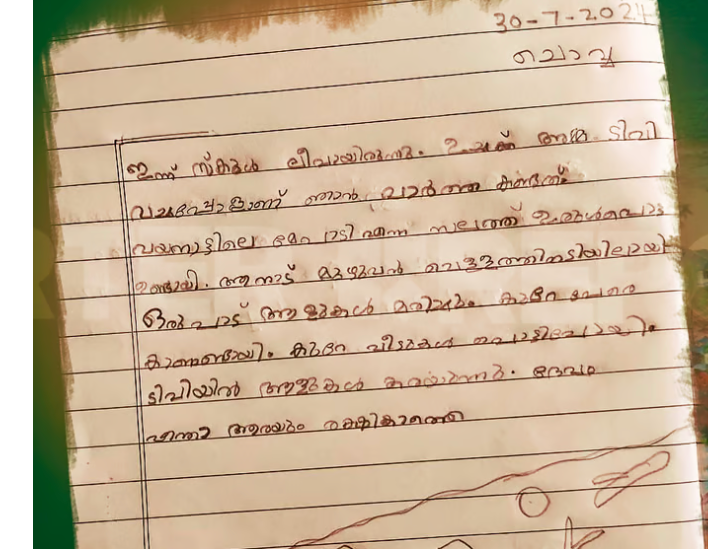 30-7-2024
ചൊവ്വ
ഇന്ന് സ്കൂൾ ലീവായിരുന്നു. ഉച്ചക്ക് അമ്മ ടിവി
വച്ചപ്പോളാണ് ഞാൻ വാർത്ത കണ്ടത്.
വയനാട്ടിലെ മേപ്പാടി എന്ന സ്ഥലത്ത് ഉരുൾപൊട്ട
ഉണ്ടായി. ആ നാട് മുഴുവൻ വെള്ളത്തിനടിയിലായി
ഒരുപാട് ആളുകൾ മരിച്ചു. കുറേ പേരെ
കാണാണ്ടായി. കുറേ വീടുകൾ പൊട്ടിപോയി.
ടിവിയിൽ ആളുകൾ കരയുന്നു. ദൈവം
എന്താ ആരെയും രക്ഷിക്കാത്തെ